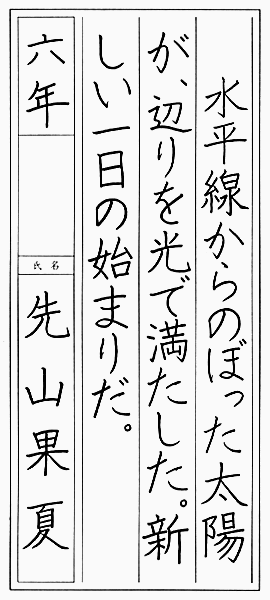 水平線からのぼった太陽
が、辺りを光で満たした。新
しい一日の始まりだ。
六年
氏名
先山果夏